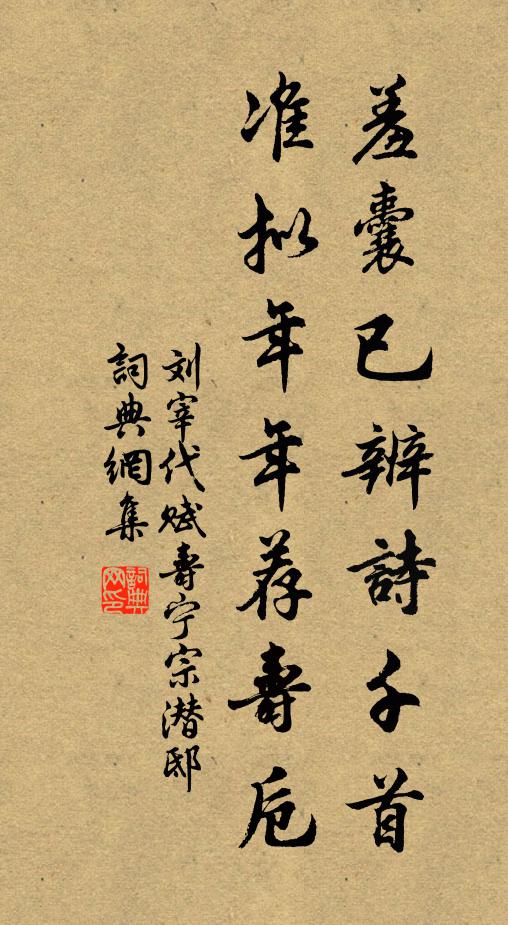 羞囊已辨詩千首
准拟年年荐壽卮
刘宰代赋壽宁宗潜邸
詞典網集
詞典网印